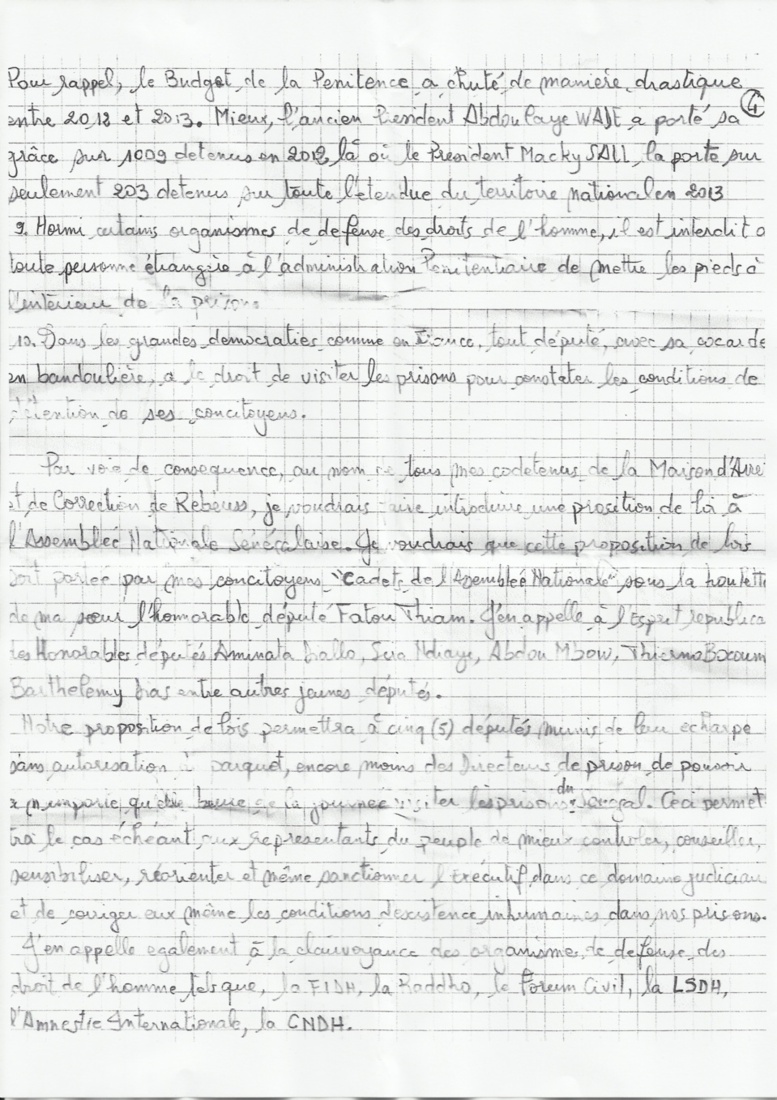 Pour rappel, le Budget de la Penitence a chuté de manière drastique
entre 2012 et 2013. Mieux, l'ancien President Abdoulaye WADE a porté sa
④
grâce sur 1009 detenus en 2012 là où le President Macky SALL la porte sur
seulement 203 detenus sur toute l'etendue du territoire national en 2013
9. Hormi certains organismes de defense des droits de l'homme, il est interdit a
toute personne étrangère à l'administration Penitentiaire de mettre les pieds à
l'intérieur de la prison.
10. Dans les grandes democraties comme en France, tout député, avec sa cocarde
en bandoulière, a le droit de visiter les prisons pour constater les conditions de
détention de ses concitoyens.
Par voie de consequence, au nom de tous mes codetenus de la Maison d'Arre
et de Correction de Rebeuss, je voudrais faire introduire une prosition de loi à
l'Assemblée Nationale Sénégalaise. Je voudrais que cette proposition de lois
soit portée par mes concitoyens "Cadets de l'Asemblée Nationale" sous la houlette
de ma sœur l'honorable député Fatou Thiam. J'en appelle à l'Esprit republica
des Honorables députés Aminata Diallo, Ndiaye, Abdou Mbow, Thierno Bocoum
Barthelemy Dias entre autres jeunes députés.
Notre proposition de lois permettra à cinq (5) députés munis de leur echarpe
sans autorisation parquet, encore moins des Directeurs de prison de pouvoir
à n'importe qu'elle heure de la journée visiter les prisons du Sénégal. Ceci permet
tra le cas échéant aux representants du peuple de mieux controler, conseiller,
sensibiliser, réorienter et même sanctionner l'Exécutif dans ce domaine judiciai
et de corriger eux même les conditions d'existence inhumaines dans nos prisons.
J'en appelle egalement à la clairvoyance des organismes de defense des
droit de l'homme tels que, la FIDH, la Raddho, le Forum Civil, la LSDH,
l'Amnestie Internationale, la CNDH.